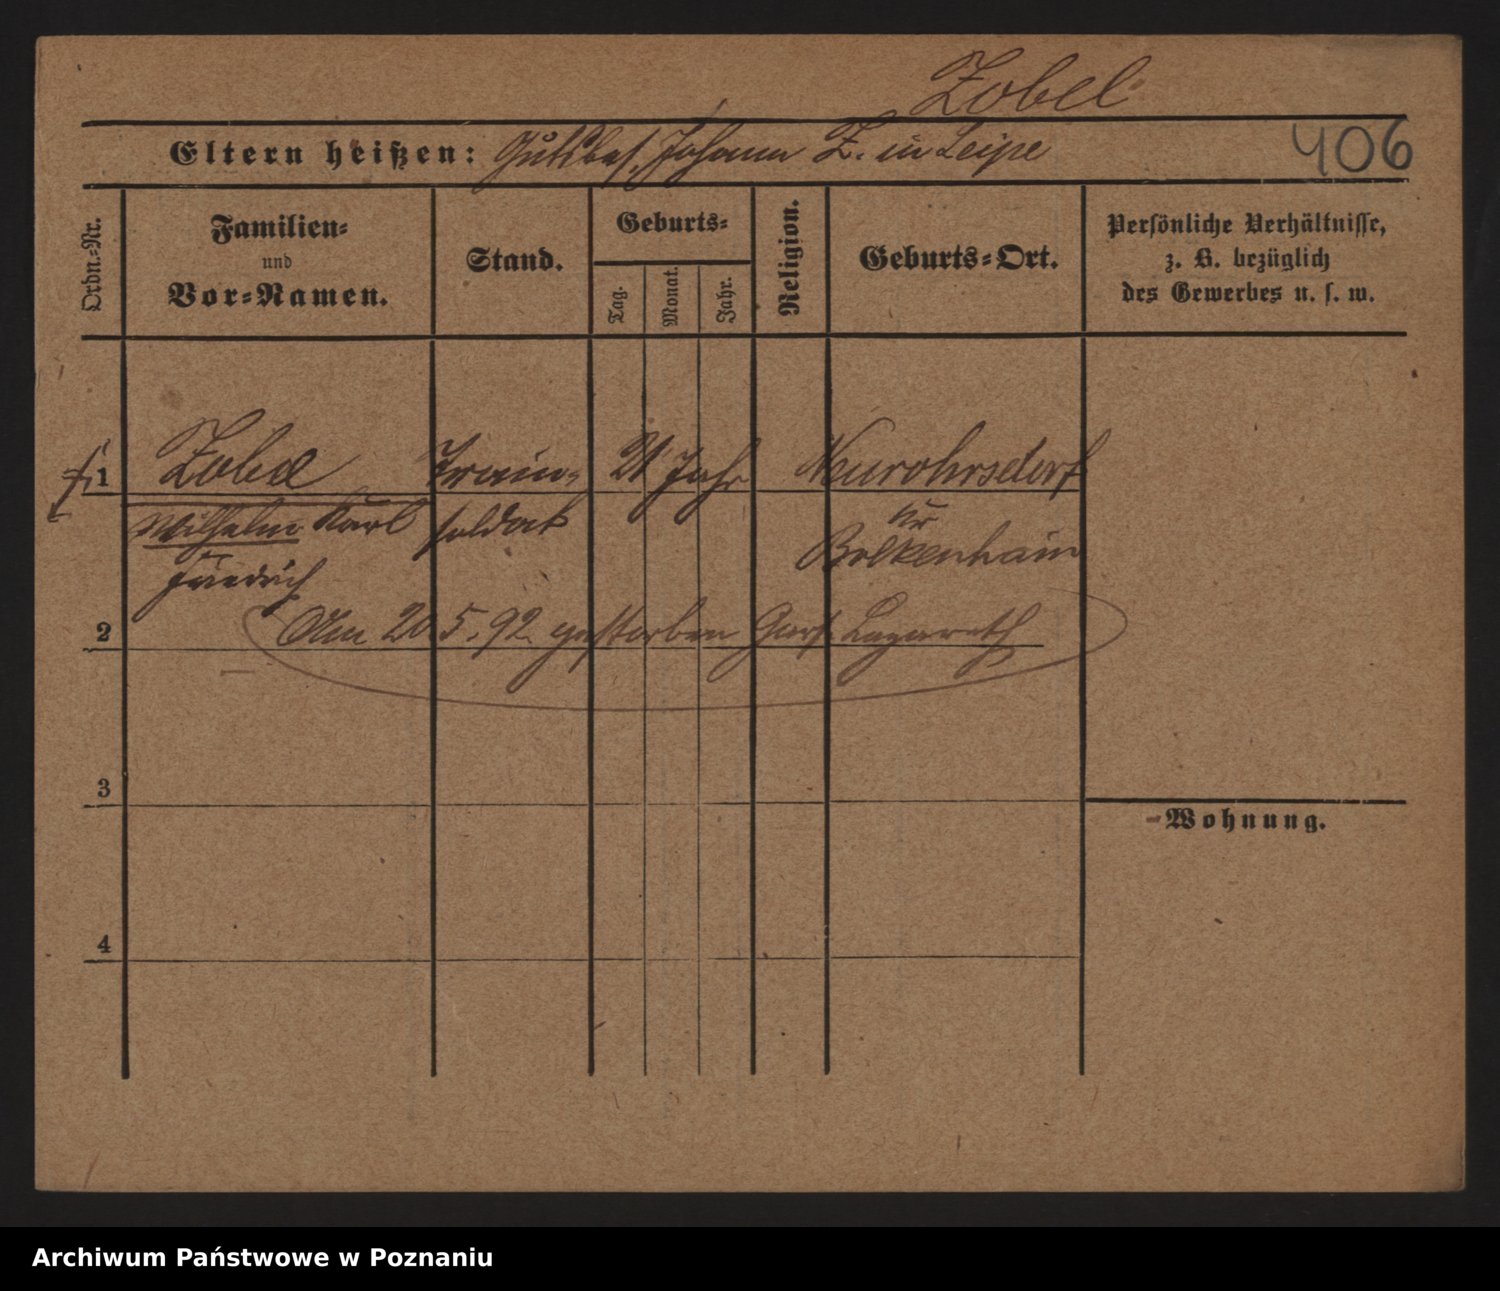 Zobel
Eltern heißen: Gutsbes. Johann Z. in Leipe
406
Ordn.-Nr.
Familien-
und
Vor-Namen.
Stand.
Geburts-
Tag.
Monat.
Jahr.
Religion.
Geburts-Ort.
Persönliche Verhältnisse,
z. B. bezüglich
des Gewerbes u. s. w.
1 Zobel Train- 21 Jahr Neurohrsdorf
Wilhelm Karl soldat Kr
Friedrich Bolkenhain
2 Am 20.5.92 gestorben Garn. Lazareth
3
Wohnung.
4
Archiwum Państwowe w Poznaniu